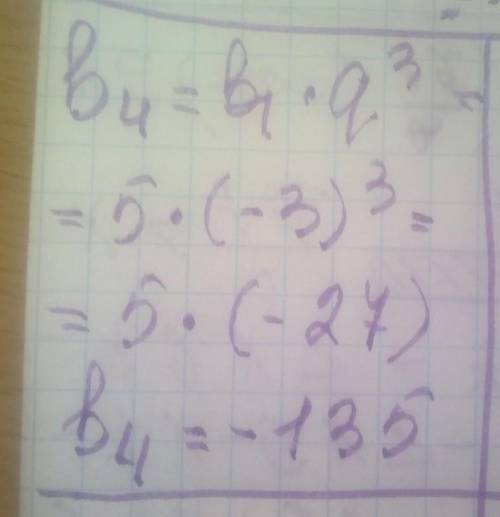 b₄ = b₁ · q³ =
= 5 · (-3)³ =
= 5 · (-27)
b₄ = -135